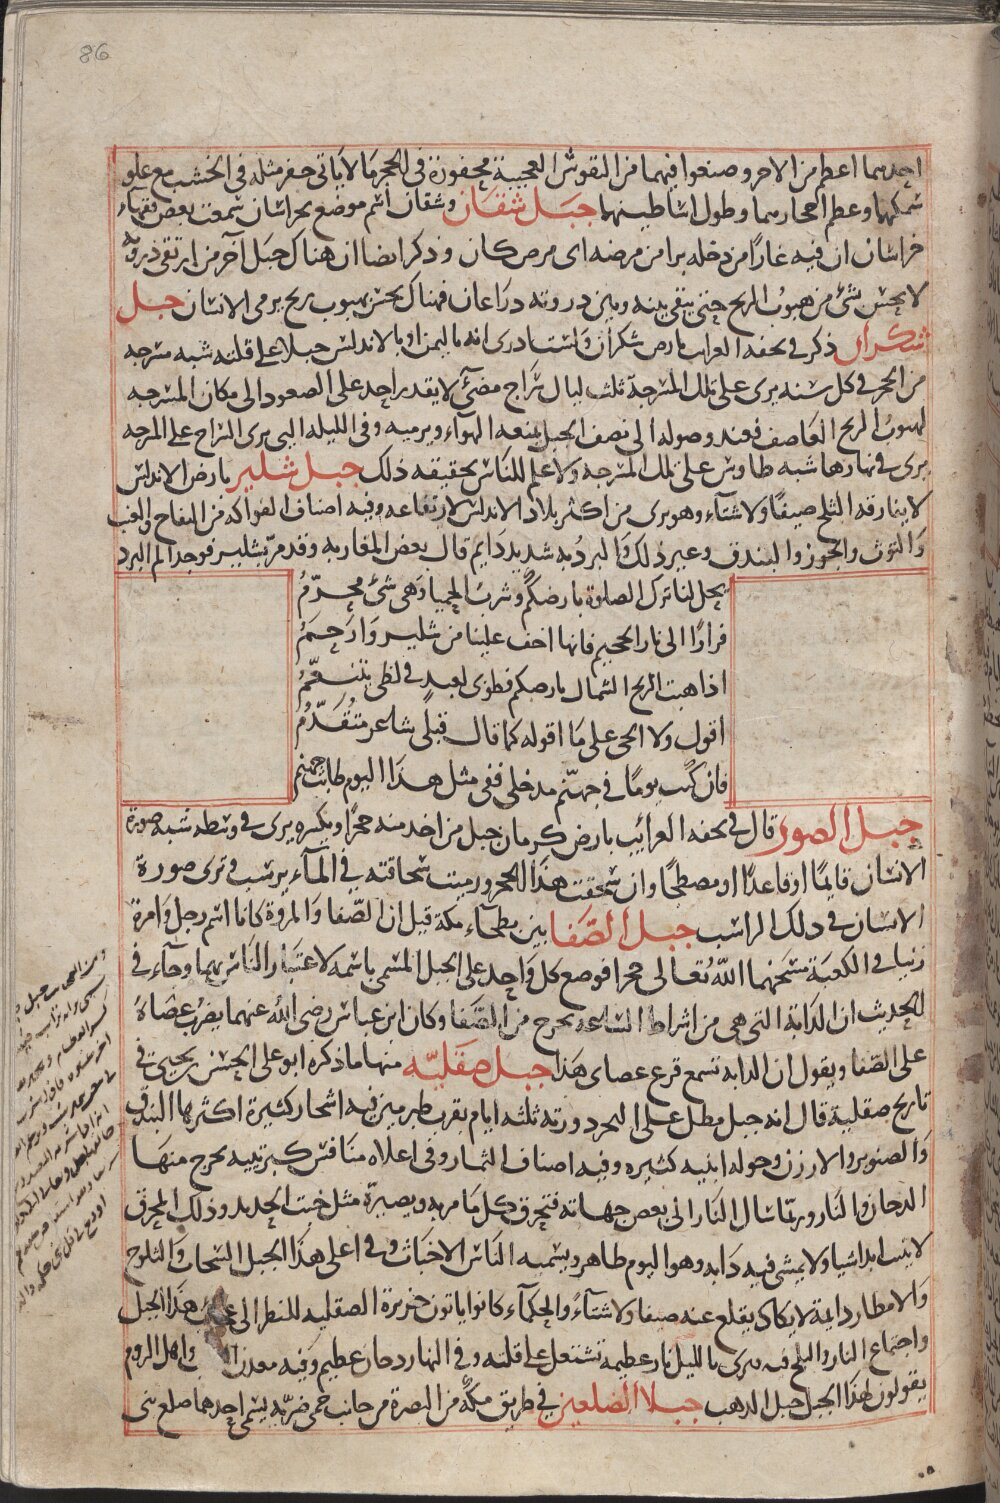 86
احدهما اعظم من الاخر وصنعوا فيهما من النقوش العجيبة محفورة في الحجر ما لا ياتي حفر مثله في الخشب مع علو
سمكهما وعظم احجارهما وطول اساطينهما جبل شقان وشقان اسم موضع بخراسان سمعت بعض فقهاء
خراسان ان فيه غارا من دخله برا من مرضه اى مرض كان وذكر ايضا ان هناك جبل آخر من ارتقى ذروته
لا يحس بشئ من هبوب الريح حتى يبقى بينه وبين ذروته ذراعان فهناك يحس بهبوب ريح يرمى الانسان جبل
شكران ذكر في تحفه الغرايب بارض شكران ولست ادرى انه باليمن او بالاندلس جبلا على قلته شبه مسرجه
من الحجر في كل سنه يرى على تلك المسرجة ثلث ليال سراج مضئ لا يقدر احد على الصعود الى مكان المسرجه
لهبوب الريح العاصف فعند وصوله الى نصف الجبل يمنعه الهواء ويرميه وفى الليله التى يرى السراج على المسرجه
يرى في نهارها شبه طاوس على تلك المسرجه ولا علم للناس بحقيقه ذلك جبل شلير بارض الاندلس
لا يفارقه الثلج صيفا ولا شتاء وهو يرى من اكثر بلاد الاندلس لارتفاعه وفيه اصناف الفواكه من التفاح والعنب
والتوت والجوز والبندق وغير ذلك والبرد به شديد دايم قال بعض المغاربه وقد مر بشلير فوجد الم البرد
يحل لنا ترك الصلوة بارضكم وشرب الحميا وهى شئ محرم
فرارا الى نار الجحيم فانها اخف علينا من شلير وارحم
اذا هبت الريح الشمال بارضكم فطوبى لعبد في لظى يتنعم
اقول ولا الحى على ما اقوله كما قال قبلى شاعر متقدم
فان كنت يوما في جهنم مدخلى ففى مثل هذا اليوم طابت جهنم
جبل الصور قال في تحفه الغرايب بارض كرمان جبل من اخذ منه حجرا ويكسره يرى في وسطه شبه صورة
الانسان قايما او قاعدا او مضطجعا وان سحقت هذا الحجر ورميت سحاقته في الماء يرسب وترى صورة
الانسان في ذلك الراسب جبل الصفا بين بطحاء مكة قيل ان الصفا والمروة كانا اسم رجل وامرة
زنيا في الكعبة مسخهما الله تعالى حجرا فوضع كل واحد على الجبل المسمى باسمه لاعتبار الناس بهما وجاء في
الحديث ان الدابة التى هى من اشراط الساعة تخرج من الصفا وكان ابن عباس رضى الله عنهما يضرب عصاه
على الصفا ويقول ان الدابه تسمع قرع عصاى هذا جبل صقلية منها ما ذكره ابو على الحسن بن يحيى في
تاريخ صقلية قال انه جبل مطل على البحر دورته ثلثه ايام بقرب طبرمين فيه اشجار كثيرة اكثرها البندق
والصنوبر والارزن وحوله ابنيه كثيره وفيه اصناف الثمار وفى اعلاه منافس كبريتيه يخرج منها
الدخان والنار وربما سال النار الى بعض جهاته فتحرق كل ما مر به ويصيره مثل خبث الحديد وذلك المحرق
لا ينبت ابدا شيا ولا يمشى فيه دابه وهو اليوم ظاهر ويسميه الناس الاخباث وفى اعلى هذا الجبل السحاب والثلوج
والامطار دايمة لا يكاد يقلع عنه صيفا ولا شتاء والحكماء كانوا ياتون جزيرة الصقليه للنظر الى هذا الجبل
واجتماع النار والثلج فيه ويرى بالليل نار عظيمة تشتعل على قلته وفى النهار دخان عظيم وفيه معدن واهل الروم
يقولون لهذا الجبل جبل الذهب جبلا الضلعين في طريق مكه من البصرة من جانب حمى ضرية يسمى احدهما ضلع بنى